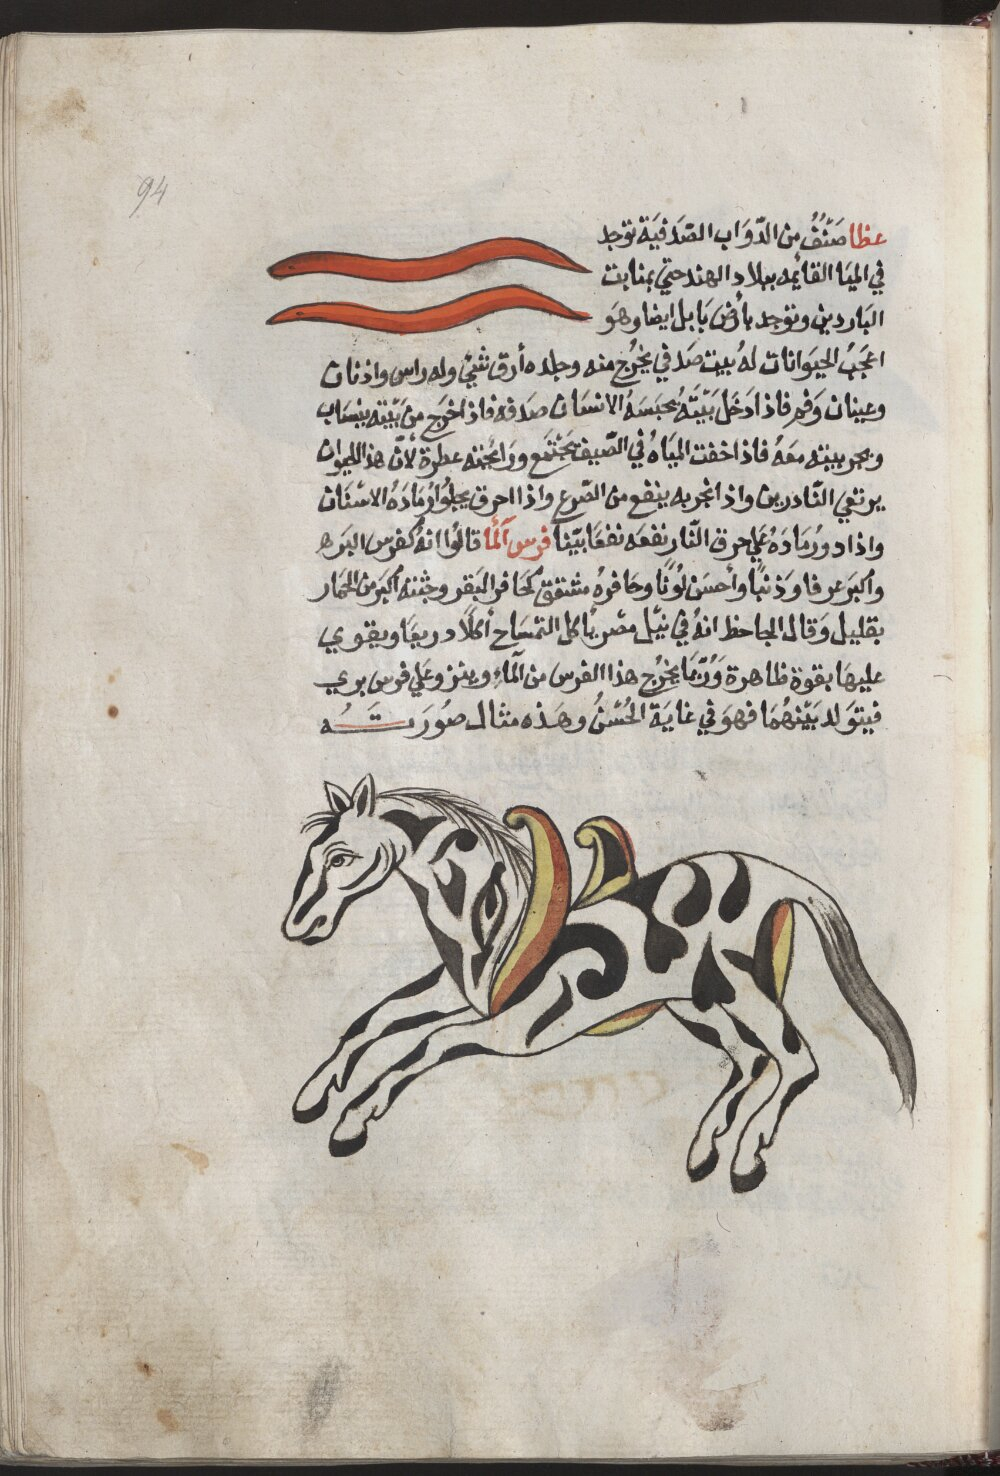 94
عظا صَنْفُ من الدّوَاب الصَّدَفيَة توَجد
في الميَا القَائمه ببلاد الهند حتي بمنابت
الباردين وتوجد بأرض بَابل ايضا وهوَ
اعجَبُ الحيَوانات لهُ بيت صَدفي يخرُج منه وجلده أرق شئ وله راس واذنان
وعينان وَفم فاذا دَخل بَيْتَهُ يحبسَهُ الانسَان صَدفه فاذا خرَج من بَيْته ينسَاب
ويجر بيته معَهُ فاذا خفت الميَاهُ في الصّيف يجْتمَع ورَائحته عطرة لأنّ هذا الحيوان
يرتعي النّادرين واذا تجر به ينفع من الصَّرع واذا احرق يجلوُا رمَادَهُ الاسْنَان
واذا درُ رمَادَهُ عَلي حرق النّار نفعَه نفعَا بيّنا فرس آلمُا قالوُا انهُ كفرس البَره
واكبَرَ عرفا وَذنبًا وأحسَن لوُنًا وحَافرهُ مشقق كحَافر البَقر وجثته اكبَر من الحمَار
بقليل وَقال الجاحظ انهُ في نيْل مصْر يأكل التمْسَاح أكلاً دريعًا ويقوي
عليهَا بقوة ظاهرة وَرُبّمَا يخرُج هذا الفرس من آلمآء وينزو عَلي فرس بري
فيتوَلد بَيْنهُمَا فهوَ في غايَة الحُسْنُ وهَذه مثال صوُرَتَــهُ